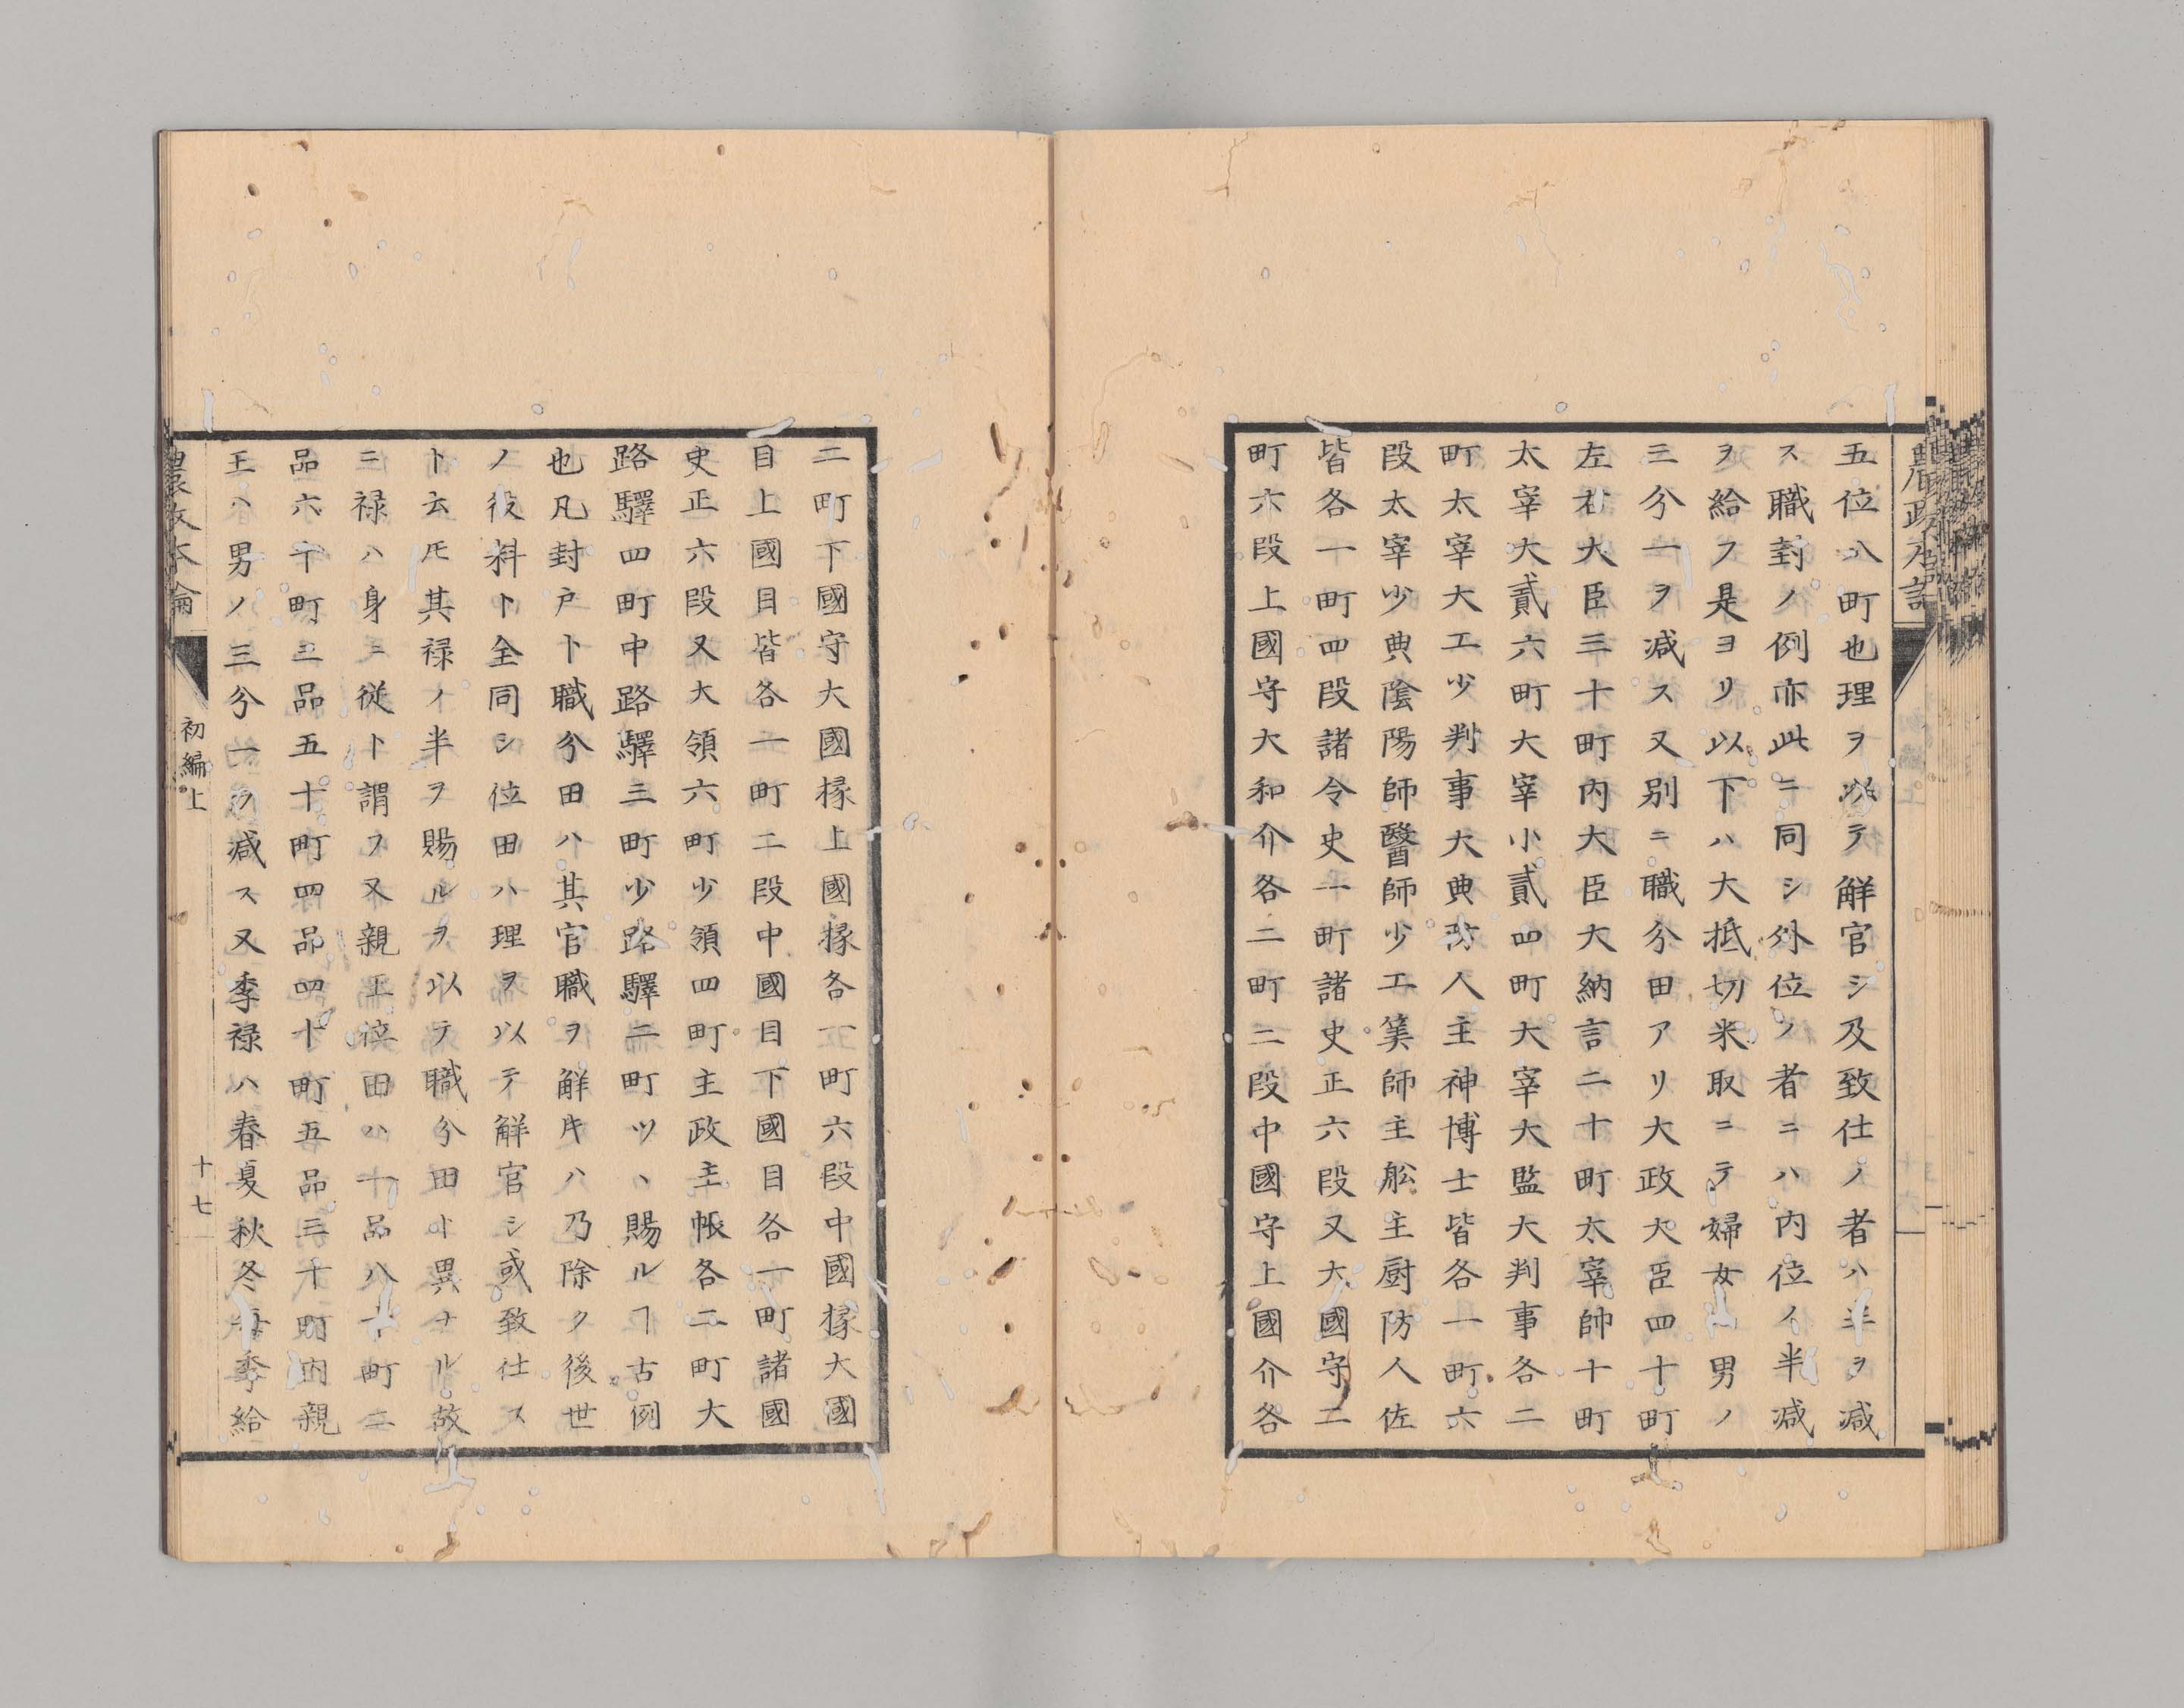 五位八町也理ヲ以テ觧官シ及致仕ノ者ハ半ヲ减
ス職封ノ例亦此ニ同シ外位ノ者ニハ内位ノ半减
ヲ給フ是ヨリ以下ハ大抵切米取ニテ婦女ハ男ノ
三分一ヲ减ス又別ニ職分田アリ大政大臣四十町
左右大臣三十町内大臣大納言二十町太宰帥十町
太宰大貳六町大宰小貳四町大宰大監大判事各二
町太宰大工少判事大典防人主神博士皆各一町六
段太宰少典陰陽師醫師少工筭師主舩主厨防人佐
皆各一町四段諸令史一町諸史正六段又大國守二
町六段上國守大和介各二町二段中國守上國介各
二町下國守大國掾上國掾各一町六段中國掾大國
目上國目皆各一町二段中國目下國目各一町諸國
史正六段又大領六町少領四町主政主帳各二町大
路驛四町中路驛三町少路驛二町ツヽ賜ルヿ古例
也凡封戸ト職分田ハ其官職ヲ觧キハ乃除ク後世
ノ役料ト全同シ位田ハ理ヲ以テ觧官シ或致仕ス
ト云𪜈其禄ノ半ヲ賜ルヲ以テ職分田ト異ナル故
ニ禄ハ身ニ従ト謂フ又親王位田ハ一品八十町二
品六十町三品五十町四品四十町五品三十町内親
王ハ男ノ三分一ヲ减ス又季禄ハ春夏秋冬毎季給
農政本論
初編上
十七